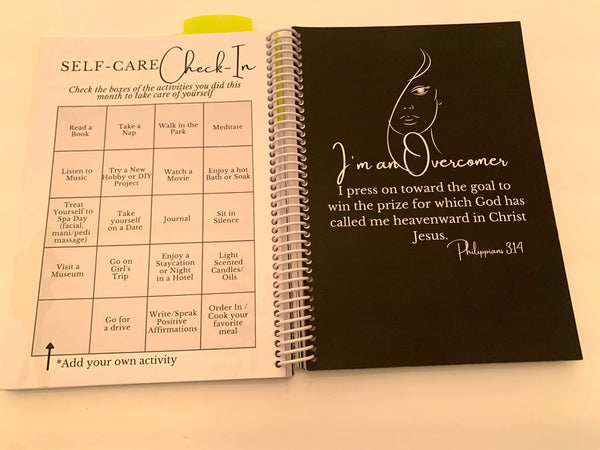 SELF-CARE Check-In
Check the boxes of the activities you did this
month to take care of yourself
Read a
Book
Take a
Nap
Walk in the
Park
Meditate
Listen to
Music
Try a New
Hobby or DIY
Project
Watch a
Movie
Enjoy a hot
Bath or Soak
Treat
Yourself to
Spa Day
(facial,
mani/pedi
massage)
Take
yourself
on a Date
Journal
Sit in
Silence
Visit a
Museum
Go on
Girl's
Trip
Enjoy a
Staycation
or Night
in a Hotel
Light
Scented
Candles/
Oils
Go for
a drive
Write/Speak
Positive
Affirmations
Order In /
Cook your
favorite
meal
*Add your own activity
I'm an Overcomer
I press on toward the goal to
win the prize for which God has
called me heavenward in Christ
Jesus.
Philippians 3:14